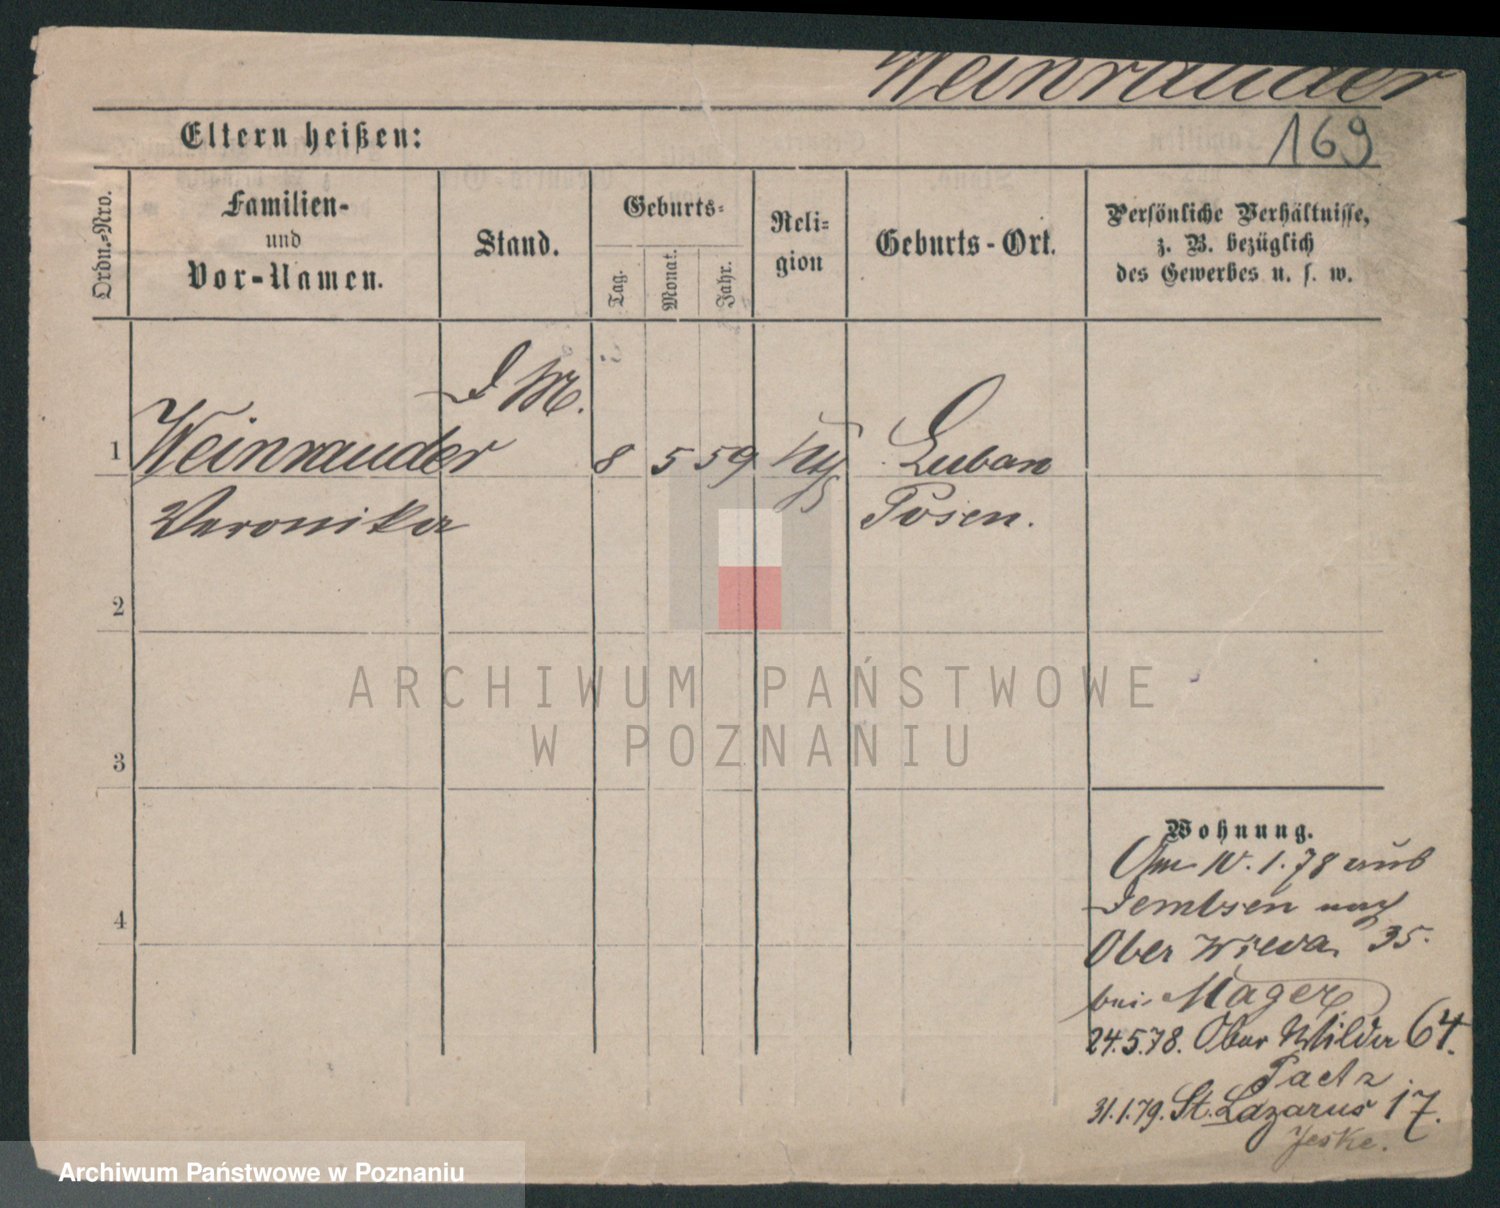 Weinrauder
169
Eltern heißen:
Ordn.-Nro.
Familien-
und
Vor-Namen.
Stand.
Geburts-
Tag.
Monat.
Jahr.
Reli-
gion
Geburts-Ort.
Persönliche Verhältnisse,
z. B. bezüglich
des Gewerbes u. s. w.
D M.
1 Weinrauder 8 5 59 Luban
Veronika Posen.
2
3
4
Wohnung.
Am 10.1.78 aus
Dembsen nach
Ober Wilda 35.
bei Mager
24.5.78. Ober Wilda 64.
Paetz
31.1.79. St. Lazarus 17.
Jeske.
ARCHIWUM PAŃSTWOWE
W POZNANIU
Archiwum Państwowe w Poznaniu